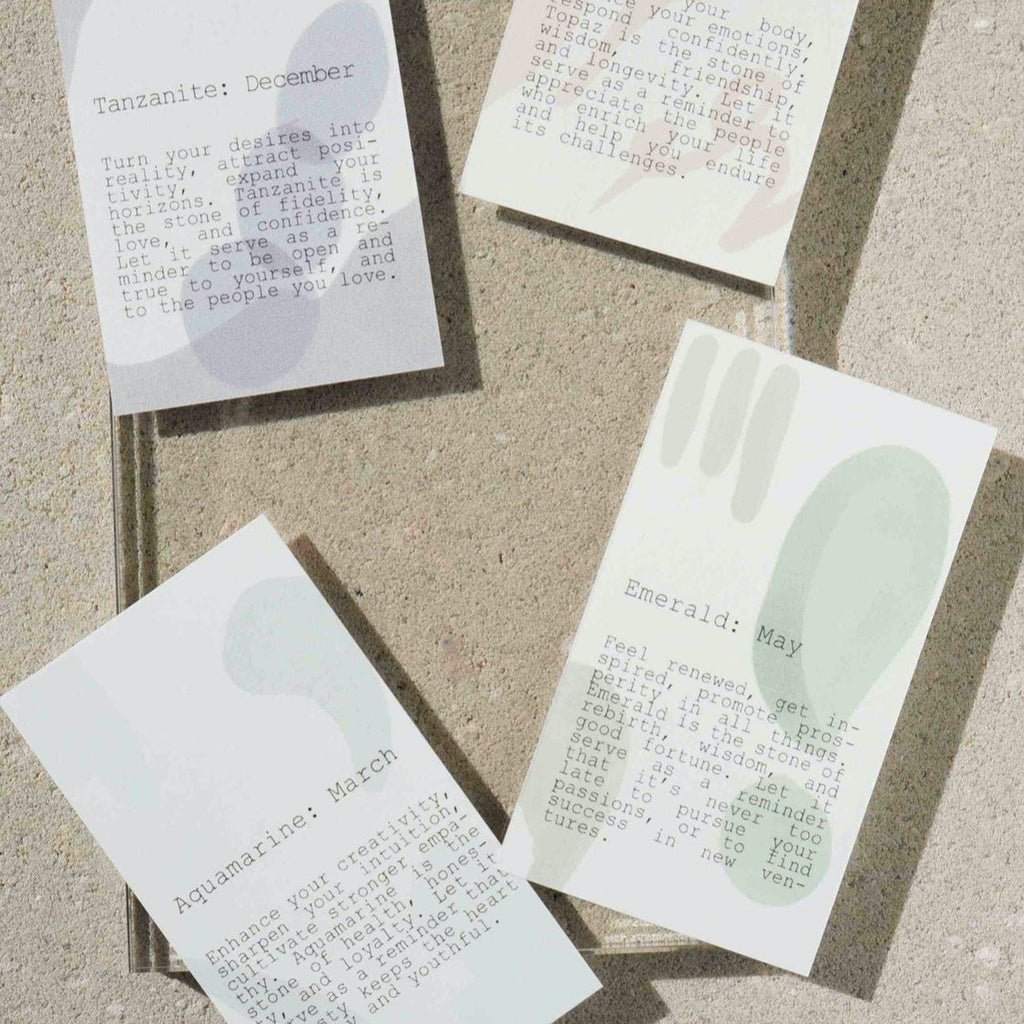 Tanzanite: December
Turn your desires into
reality, attract posi-
tivity, expand your
horizons. Tanzanite is
the stone of fidelity,
love, and confidence.
Let it serve as a re-
minder to be open and
true to yourself, and
to the people you love.
your body,
your emotions,
respond confidently.
Topaz is the stone of
wisdom, friendship,
and longevity. Let it
serve as a reminder to
appreciate the people
who enrich your life
and help you endure
its challenges.
Emerald: May
Feel renewed, get in-
spired, promote pros-
perity in all things.
Emerald is the stone of
rebirth, wisdom, and
good fortune. Let it
serve as a reminder
that it's never too
late to pursue your
passions, or to find
success in new ven-
tures.
Aquamarine: March
Enhance your creativity,
sharpen your intuition,
cultivate stronger empa-
thy. Aquamarine is the
stone of health, hones-
ty, and loyalty. Let it
rve as a reminder that
sty keeps the heart
y and youthful.